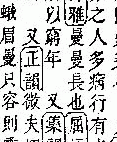 之人多病行有
雅曼曼長也屈
以窮年又
又正韻微夫
蛾眉曼只容則